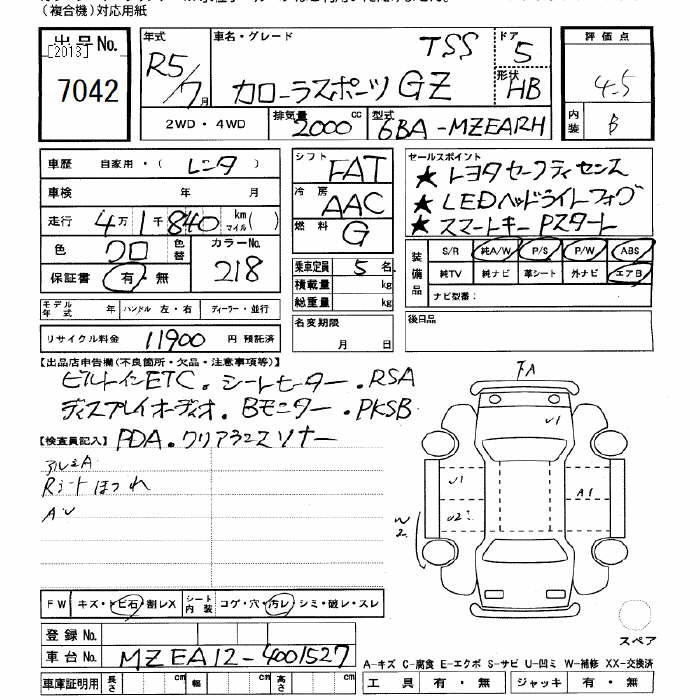 (複合機)対応用紙
出品No.
[2013]
7042
年式
R5/7月
車名・グレード
TSS
カローラスポーツ GZ
ドア
5
形状
HB
評価点
4.5
内装
B
2WD・4WD
排気量
2000
cc
型式
6BA-MZEA12H
車歴 自家用・(レンタ)
車検 年 月
走行 4万1千840 km マイル( )
色 クロ 色替
カラーNo.
218
保証書 有・無
モデル年式 ハンドル 左・右 ディーラー・並行
リサイクル料金 11900 円 預託済
シフト
FAT
冷房
AAC
燃料
G
乗車定員 5 名
積載量 kg
総重量 kg
名変期限
月 日
セールスポイント
★トヨタセーフティセンス
★LEDヘッドライトフォグ
★スマートキーPスタート
装備品
S/R 純A/W P/S P/W ABS
純TV 純ナビ 革シート 外ナビ エアB
ナビ型番:
後日品
【出品店申告欄(不良箇所・欠品・注意事項等)】
ビルトインETC.シートヒーター.RSA
ディスプレイオーディオ.Bモニター.PKSB
【検査員記入】 PDA.クリアランスソナー
アルミA
Rシートほつれ
AU
FA
U1
U1
A1
U2
W2
FW キズ・トビ石・割レX
シート内装 コゲ・穴・汚レ・シミ・破レ・スレ
スペア
登録No.
車台No. MZEA12-4001527
A-キズ C-腐食 E-エクボ S-サビ U-凹ミ W-補修 XX-交換済
車庫証明用 長さ cm 幅 cm 高さ cm
工具 有・無 ジャッキ 有・無